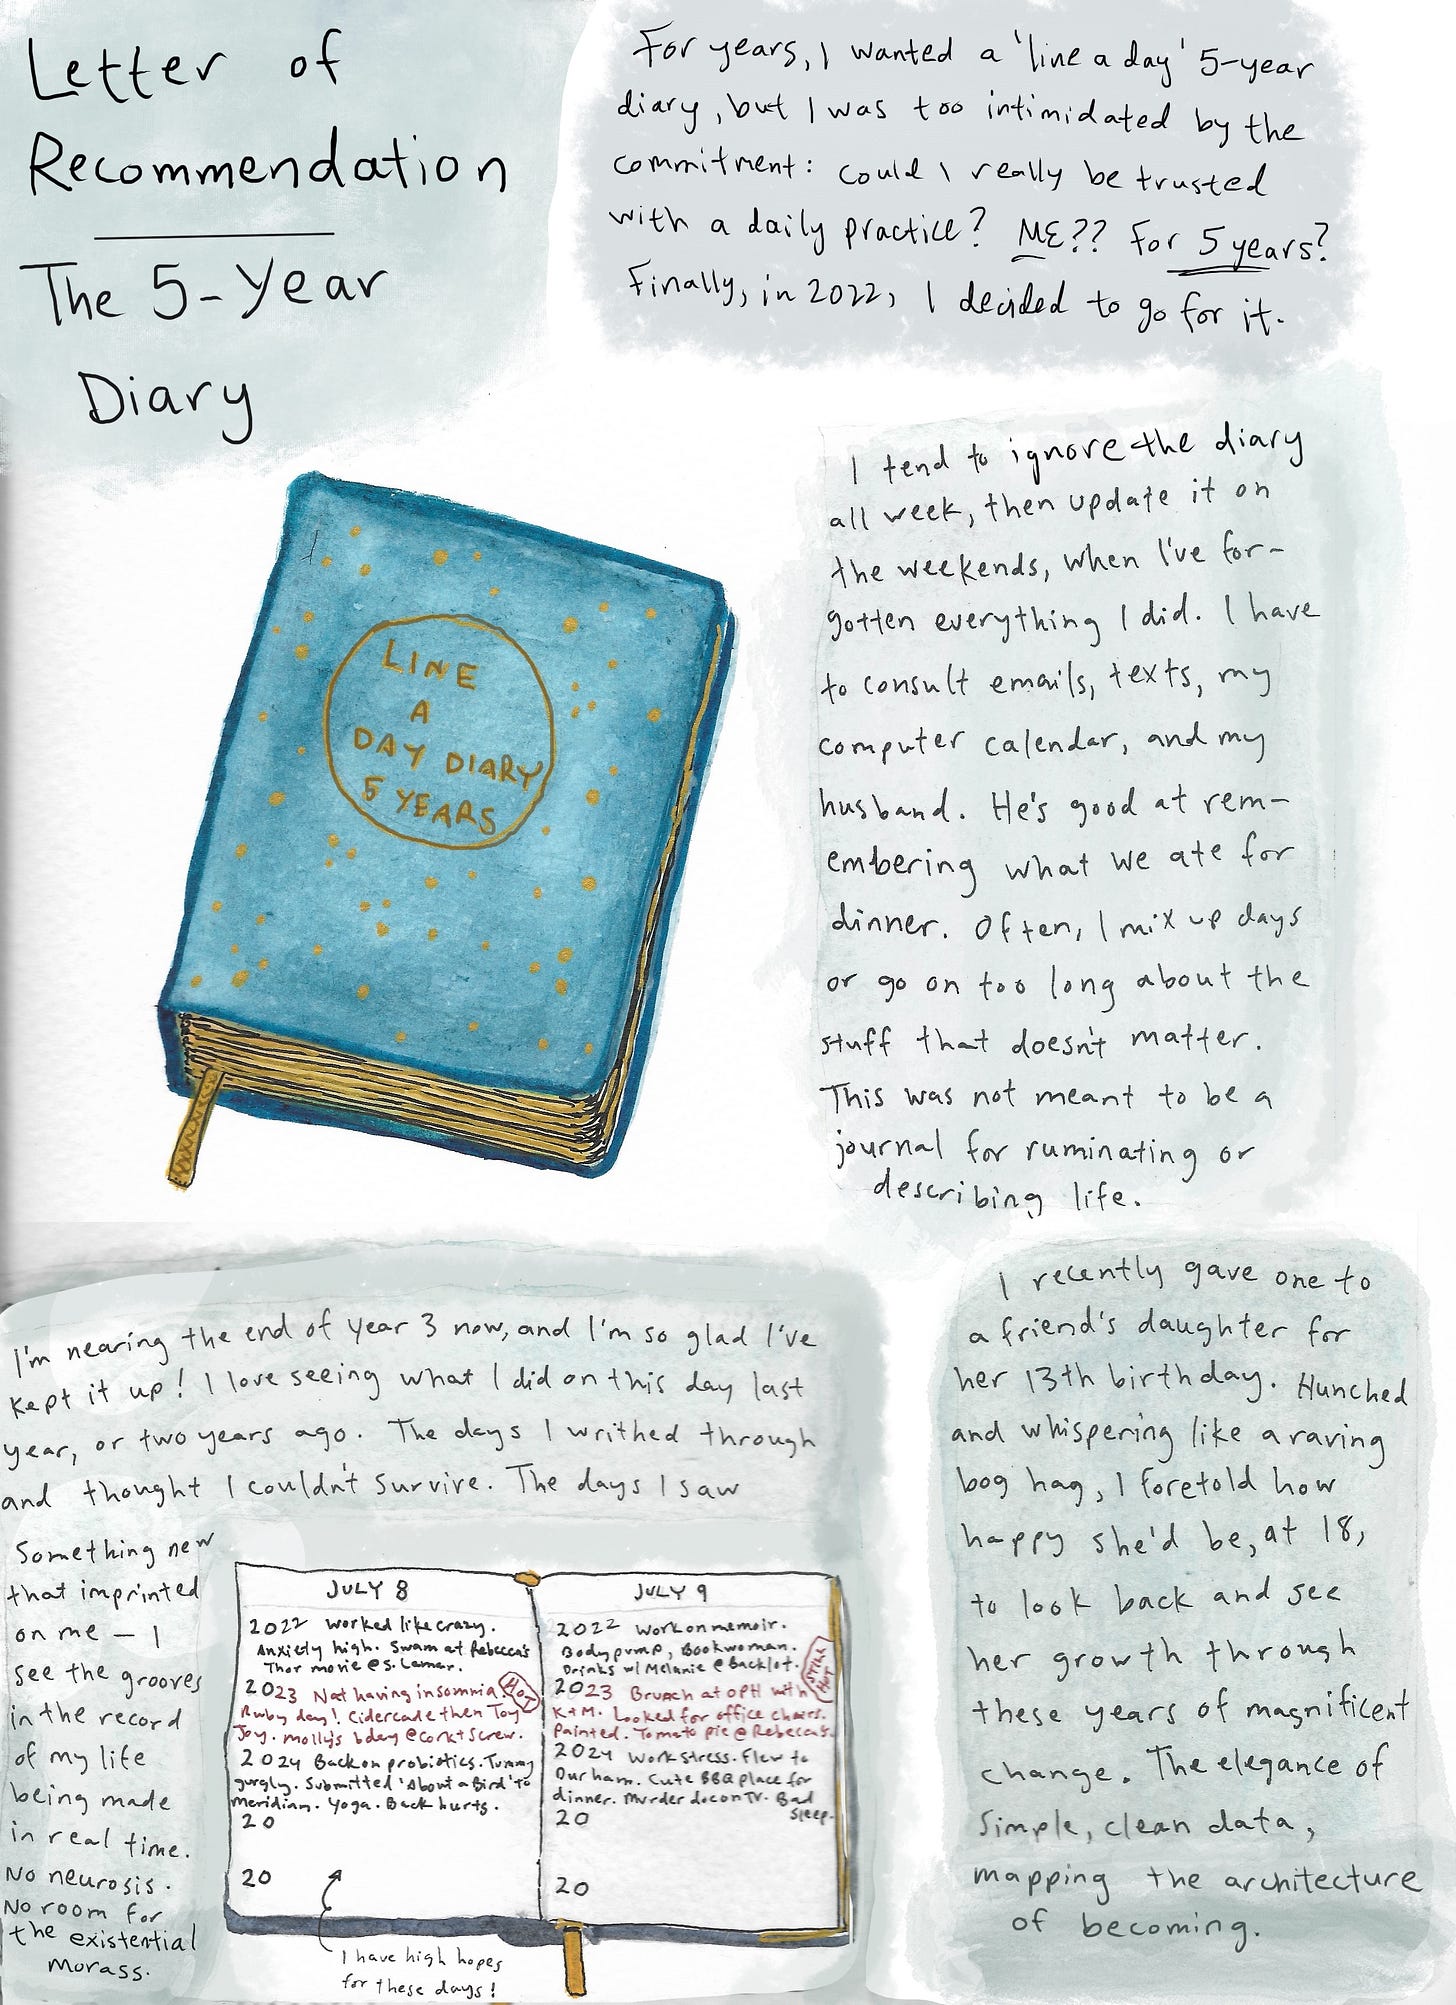 Letter of
Recommendation
The 5-Year
Diary
For years, I wanted a 'line a day' 5-year
diary, but I was too intimidated by the
commitment: could I really be trusted
with a daily practice? ME?? For 5 years?
Finally, in 2022, I decided to go for it.
LINE
A
DAY DIARY
5 YEARS
I tend to ignore the diary
all week, then update it on
the weekends, when I've for-
gotten everything I did. I have
to consult emails, texts, my
computer calendar, and my
husband. He's good at rem-
embering what we ate for
dinner. Often, I mix up days
or go on too long about the
stuff that doesn't matter.
This was not meant to be a
journal for ruminating or
describing life.
I'm nearing the end of year 3 now, and I'm so glad I've
kept it up! I love seeing what I did on this day last
year, or two years ago. The days I writhed through
and thought I couldn't survive. The days I saw
something new
that imprinted
on me — I
see the grooves
in the record
of my life
being made
in real time.
No neurosis.
No room for
the existential
morass.
JULY 8
2022 Worked like crazy.
Anxiety high. Swam at Rebecca's
Thor movie @ S. Lamar.
2023 Not having insomnia. HOT
Ruby day! Cidercade then Toy
Joy. Molly's bday @ Cork + Screw.
2024 Back on probiotics. Tummy
gurgly. Submitted 'About a Bird' to
Meridian. Yoga. Back hurts.
20
20
JULY 9
2022 Work on memoir.
Bodypump, Bookwoman.
Drinks w/ Melanie @ Backlot.
2023 Brunch at OPH with STILL HOT
K+M. Looked for office chairs.
Painted. Tomato pie @ Rebecca's.
2024 Work stress. Flew to
Durham. Cute BBQ place for
dinner. Murder doc on TV. Bad
sleep.
20
20
I have high hopes
for these days!
I recently gave one to
a friend's daughter for
her 13th birthday. Hunched
and whispering like a raving
bog hag, I foretold how
happy she'd be, at 18,
to look back and see
her growth through
these years of magnificent
change. The elegance of
simple, clean data,
mapping the architecture
of becoming.